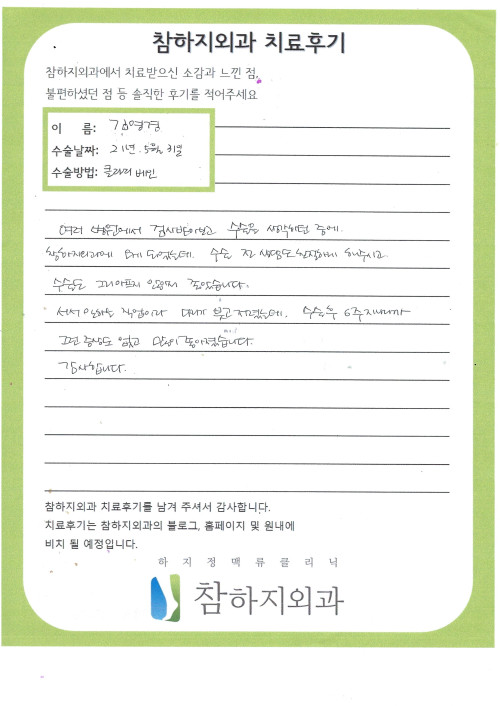 참하지외과 치료후기
참하지외과에서 치료받으신 소감과 느낀 점,
불편하셨던 점 등 솔직한 후기를 적어주세요
이 름: 김영경
수술날짜: 21년. 5월. 31일
수술방법: 클라리베인
여러 병원에서 검사받아보고 수술을 생각하던 중에.
참하지외과에 오게 되었는데. 수술 전 설명도 친절하게 해주시고.
수술도 그리 아프지 않아서 좋았습니다.
서서 일하는 직업이라 다리가 붓고 저렸는데. 수술후 6주 지나니까
그런 증상도 없고 많이 좋아졌습니다.
감사합니다.
참하지외과 치료후기를 남겨 주셔서 감사합니다.
치료후기는 참하지외과의 블로그, 홈페이지 및 원내에
비치 될 예정입니다.
하지정맥류클리닉
참하지외과